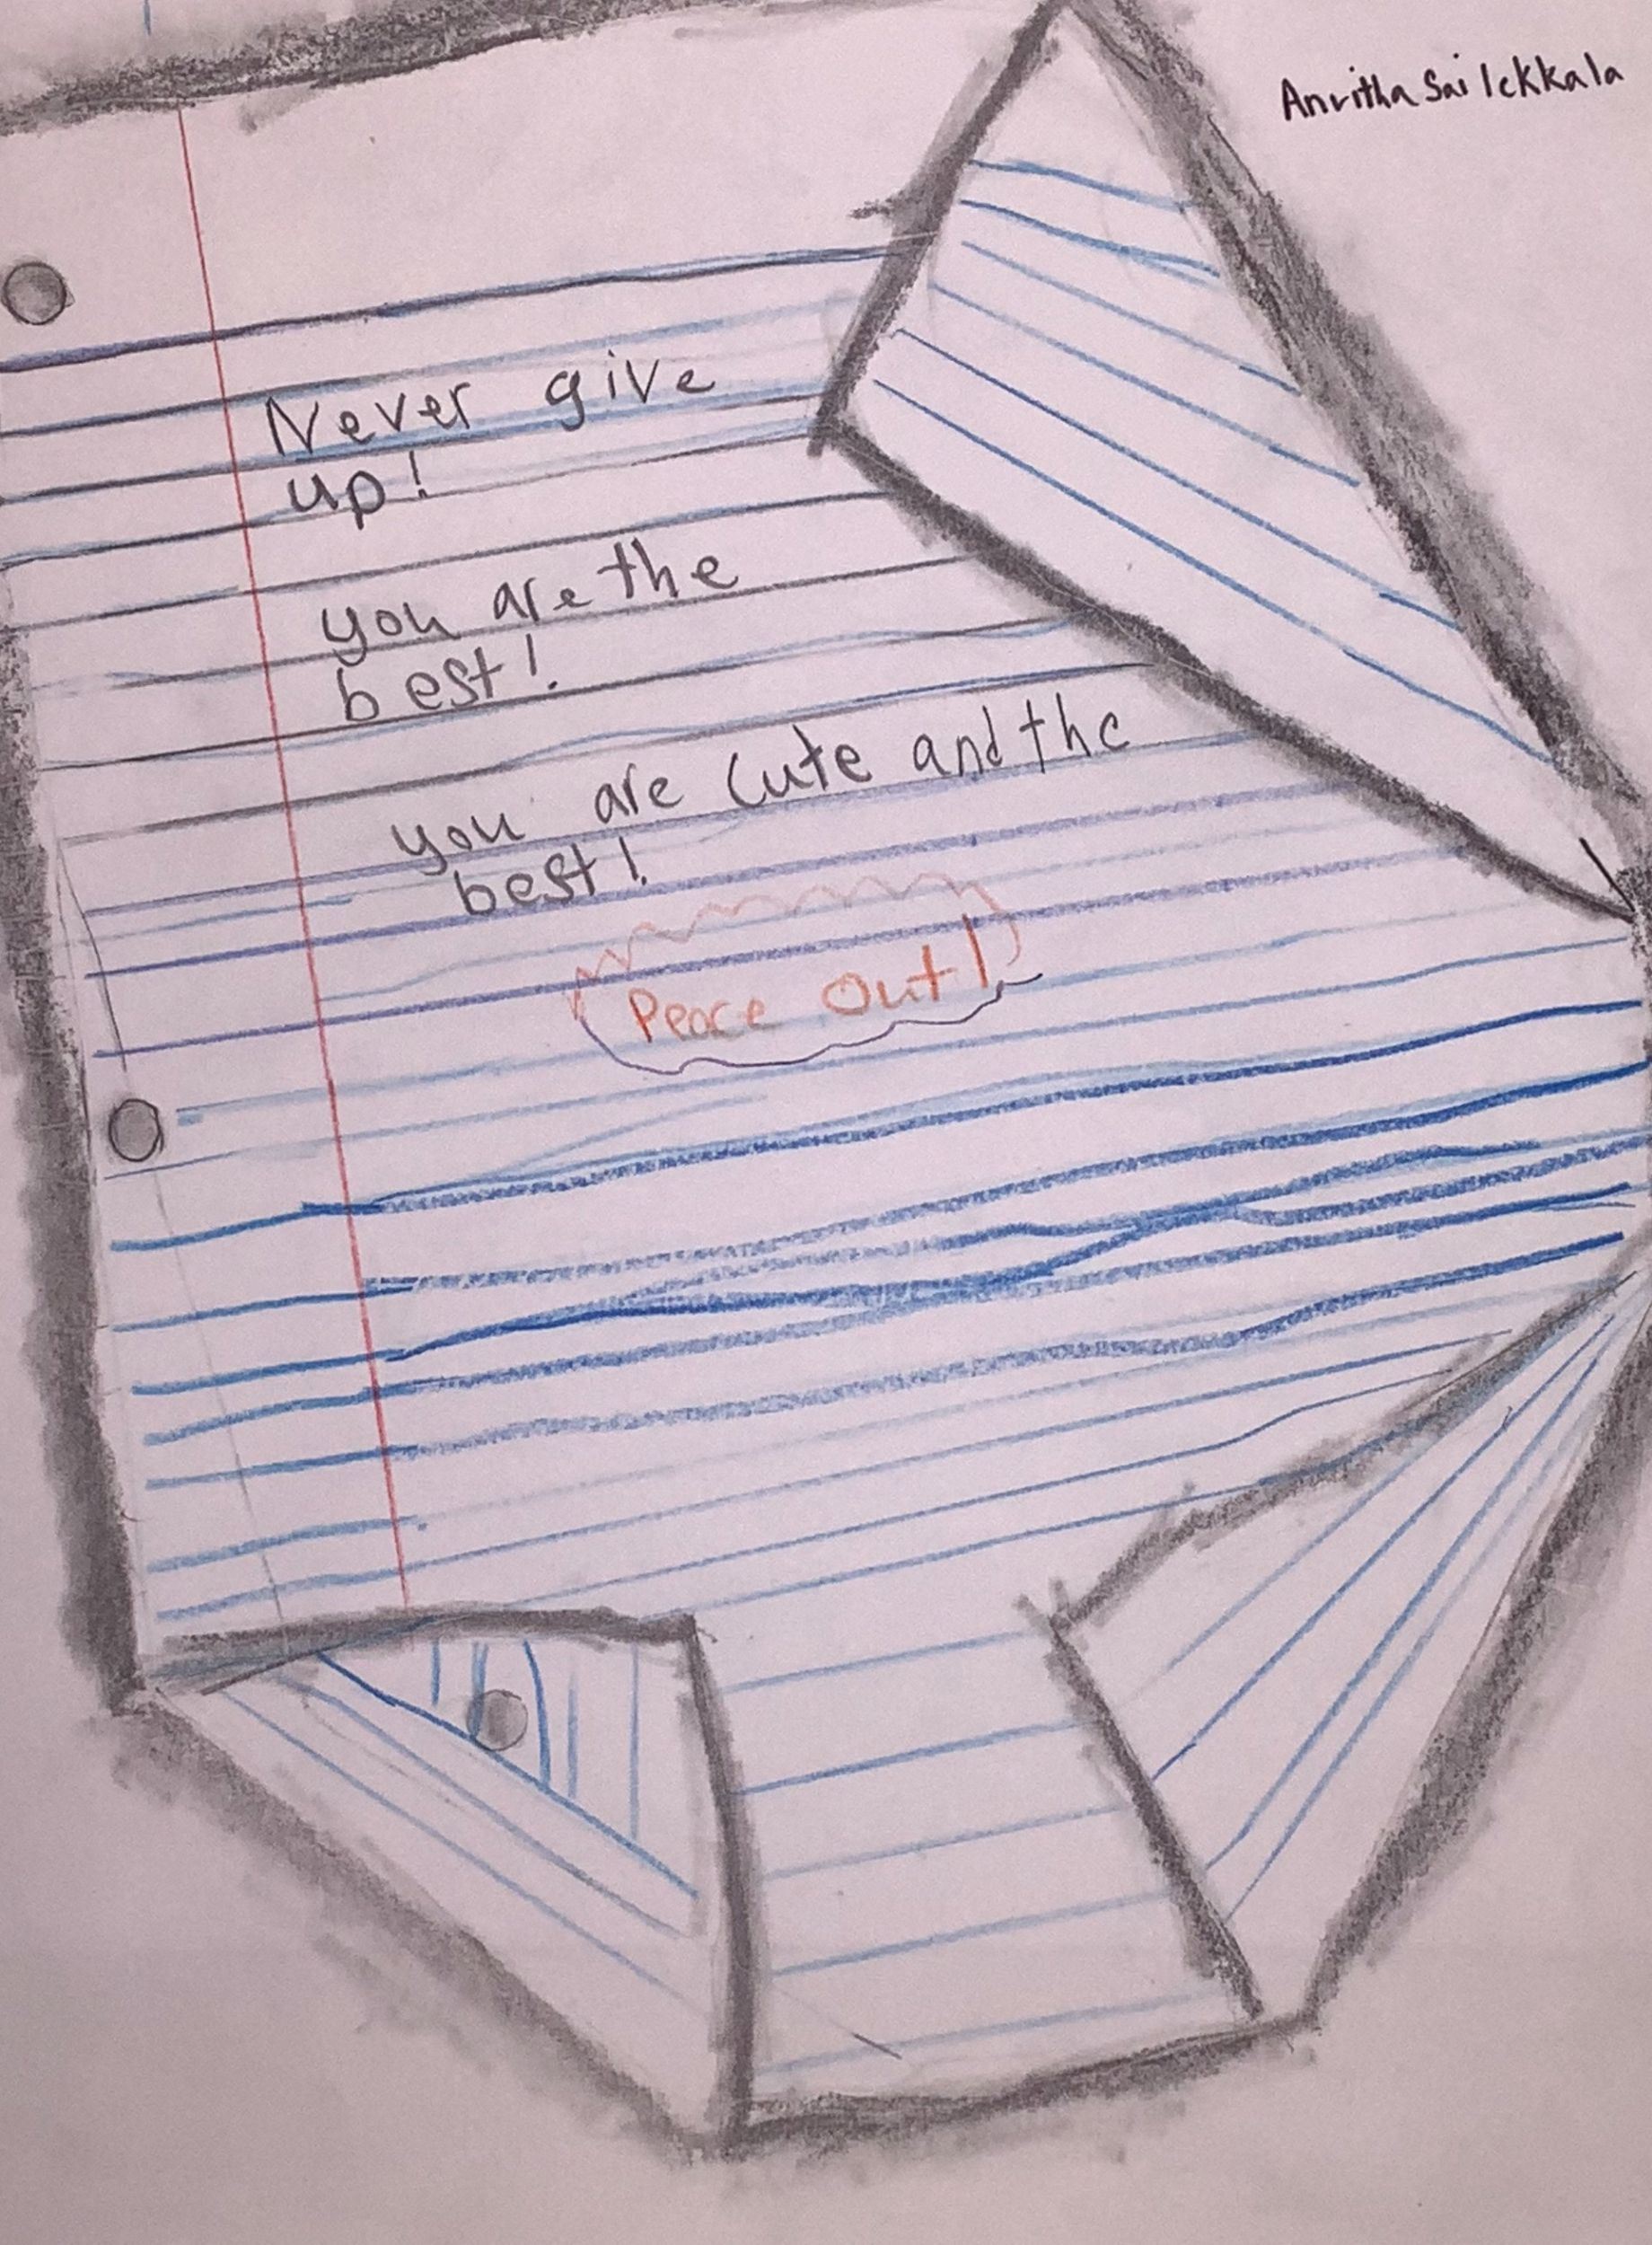 Anritha Sai Ickkala
Never give
up!
you are the
best!
you are cute and the
best!
Peace Out!